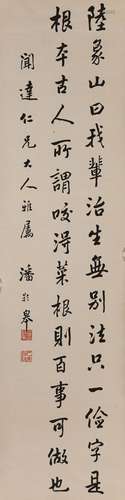 陸象山曰我輩治生無別法只一儉字是
根本古人所謂咬得菜根則百事可做也
聞達仁兄大人雅屬
潘齡皋